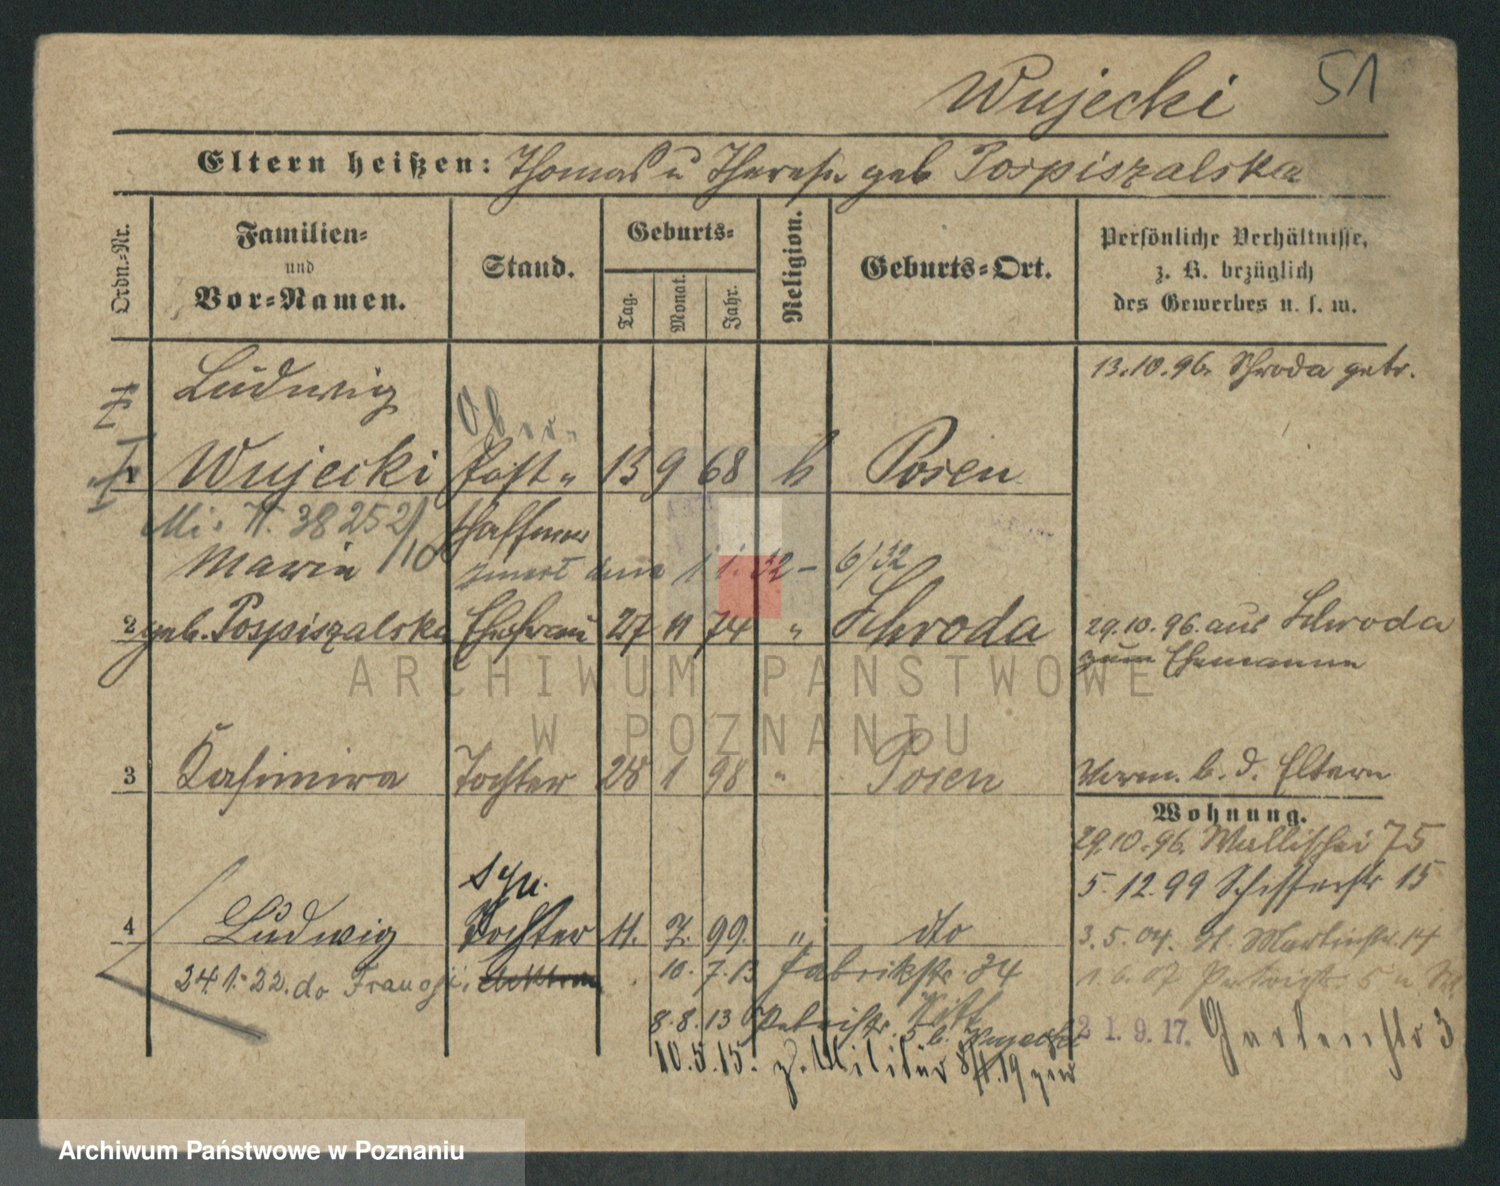 Wujecki 51
Eltern heißen: Thomas u Therese geb Pospiszalska
Ordn.-Nr.
Familien-
und
Vor-Namen.
Stand.
Geburts-
Tag. Monat. Jahr.
Religion.
Geburts-Ort.
Persönliche Verhältnisse,
z. B. bezüglich
des Gewerbes u. s. w.
Ludwig
13.10.96. Schroda getr.
Ober-
1 Wujecki Post- 13 9 68 k Posen
Mi. 38 252/10 schaffner
Maria 1.1.32 - 6/32
2 geb. Pospiszalska Ehefrau 27 11 74 " Schroda 29.10.96. aus Schroda
zum Ehemanne
3 Kasimira Tochter 28 1 98 " Posen Verm. b. d. Eltern
Wohnung.
29.10.96. Wallischei 75
5.12.99 Schifferstr 15
4 Ludwig Tochter 11. 7. 99. " dto
3.5.04. St. Martinstr. 14
24.1.22. do 10.7.13 Fabrikstr. 34
1.6.07
8.8.13 Petristr. 5 b. Wujecki
21.9.17. Gartenstr 3
10.5.15. z. Militär
ARCHIWUM PAŃSTWOWE
W POZNANIU
Archiwum Państwowe w Poznaniu